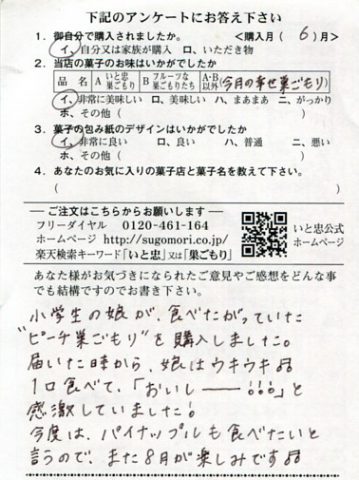 下記のアンケートにお答え下さい
1. 御自分で購入されましたか。 <購入月( 6 )月>
イ、自分又は家族が購入 ロ、いただき物
2. 当店の菓子のお味はいかがでしたか
品 名 A いと忠巣ごもり B フルーツな巣ごもりたち A・B以外 (今月の幸せ巣ごもり)
イ、非常に美味しい ロ、美味しい ハ、まあまあ ニ、がっかり
ホ、その他( )
3. 菓子の包み紙のデザインはいかがでしたか
イ、非常に良い ロ、良い ハ、普通 ニ、悪い
ホ、その他( )
4. あなたのお気に入りの菓子店と菓子名を教えて下さい。
( )
―ご注文はこちらからお願いします―
フリーダイヤル 0120-461-164
ホームページ http://sugomori.co.jp/
楽天検索キーワード「いと忠」又は「巣ごもり」
いと忠公式
ホームページ
あなた様がお気づきになられたご意見やご感想をどんな事
でも結構ですのでお書き下さい。
小学生の娘が、食べたがっていた
"ピーチ巣ごもり"を購入しました。
届いた時から、娘はウキウキ♫
1口食べて、「おいしー――!!!」と
感激していました!
今度は、パイナップルも食べたいと
言うので、また8月が楽しみです♫